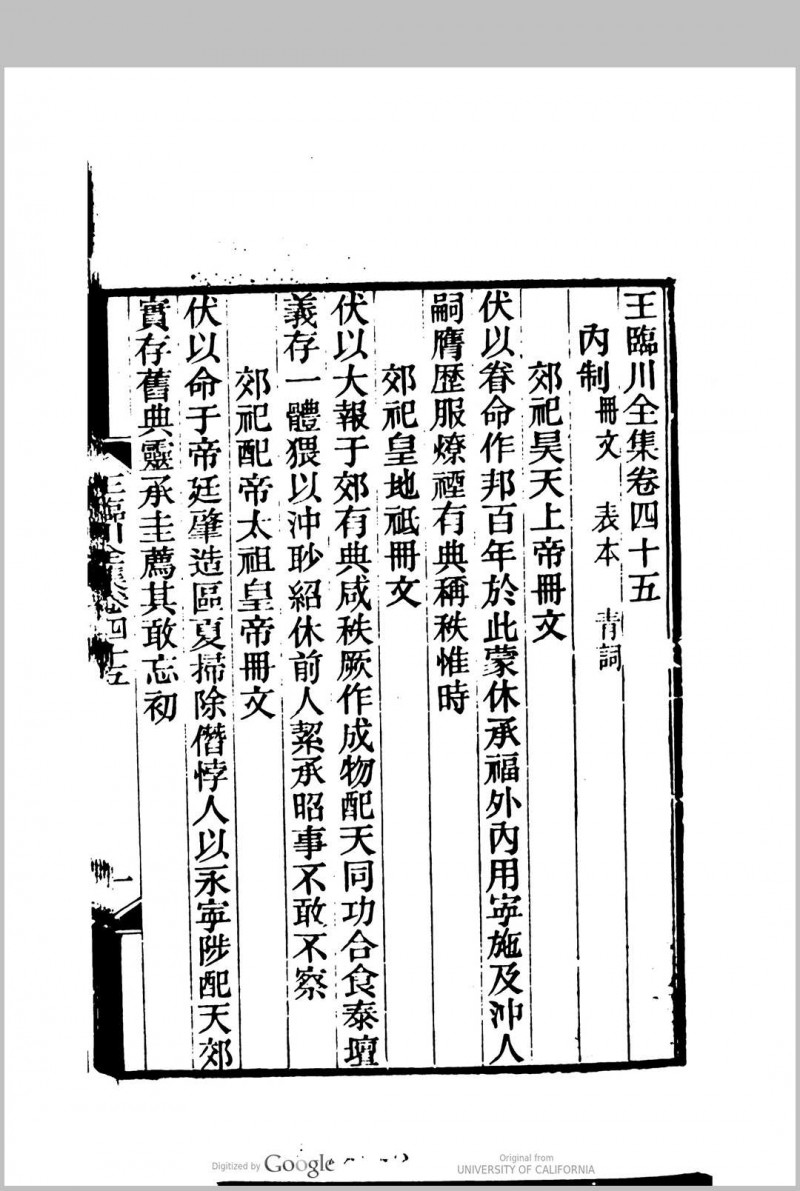 王臨川全集卷四十五
內制 冊文 表本 青詞
郊祀昊天上帝冊文
伏以眷命作邦百年於此蒙休承福外內用寧施及沖人
嗣膺歷服燎禋有典稱秩惟時
郊祀皇地祇冊文
伏以大報于郊有典咸秩厥作成物配天同功合食泰壇
義存一體猥以沖眇紹休前人絜承昭事不敢不察
郊祀配帝太祖皇帝冊文
伏以命于帝廷肇造區夏掃除僭悖人以永寧陟配天郊
實存舊典靈承圭薦其敢忘初
王臨川全集卷四十五
一
Digitized by Google
Original from
UNIVERSITY OF CALIFORNIA